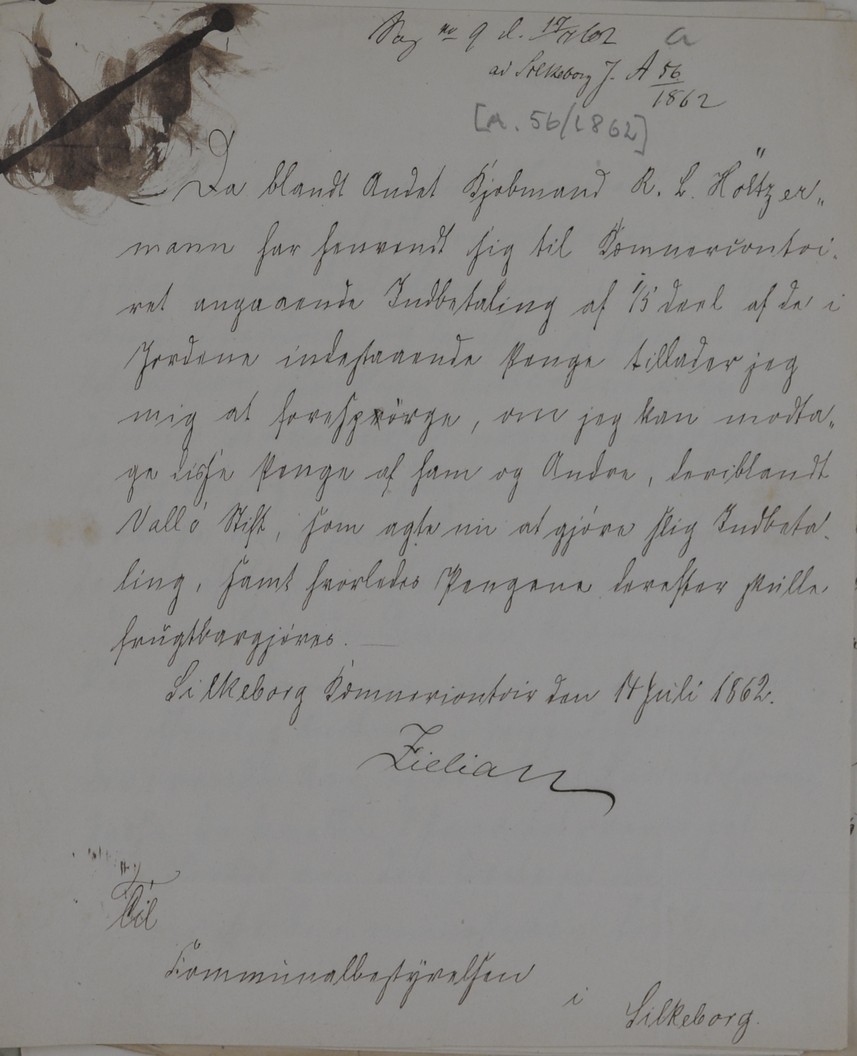 Sag no 9 d. 17/7 62 a
ad Silkeborg J. A 56/1862
[A. 56/1862]
Da blandt Andet Kjøbmand R. L. Höltzer„
mann har henvendt sig til Kæmnercontoi-
ret angaaende Indbetaling af 1/5 deel af de i
Jordene indestaaende Penge tillader jeg
mig at forespørge, om jeg kan modta„
ge disse Penge af ham og Andre, deriblandt
Vallö Stift, som agte nu at gjøre slig Indbeta-
ling, samt hvorledes Pengene derefter skulle
frugtbargjøres.
Silkeborg Kæmnercontoir den 14 Juli 1862.
Zielian
Til
Kommunalbestyrelsen
i
Silkeborg.